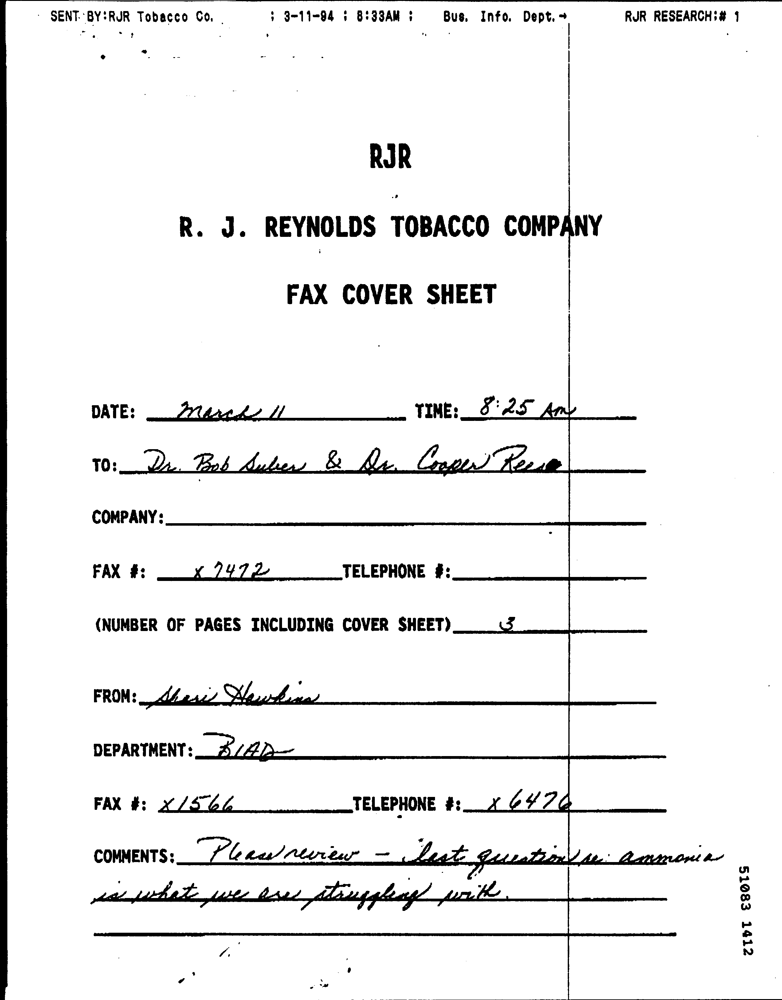 SENT BY:RJR Tobacco Co. ; 3-11-94 ; 8:33AM ; Bus. Info. Dept.→ RJR RESEARCH:# 1
RJR
R. J. REYNOLDS TOBACCO COMPANY
FAX COVER SHEET
DATE: March 11 TIME: 8:25 AM
TO: Dr. Bob Suber & Dr. Cooper Reese
COMPANY:
FAX #: x 7472 TELEPHONE #:
(NUMBER OF PAGES INCLUDING COVER SHEET) 3
FROM: Shari Hawkins
DEPARTMENT: BIAD
FAX #: x1566 TELEPHONE #: x 6476
COMMENTS: Please review - last question re: ammonia
is what we are struggling with.
51083 1412